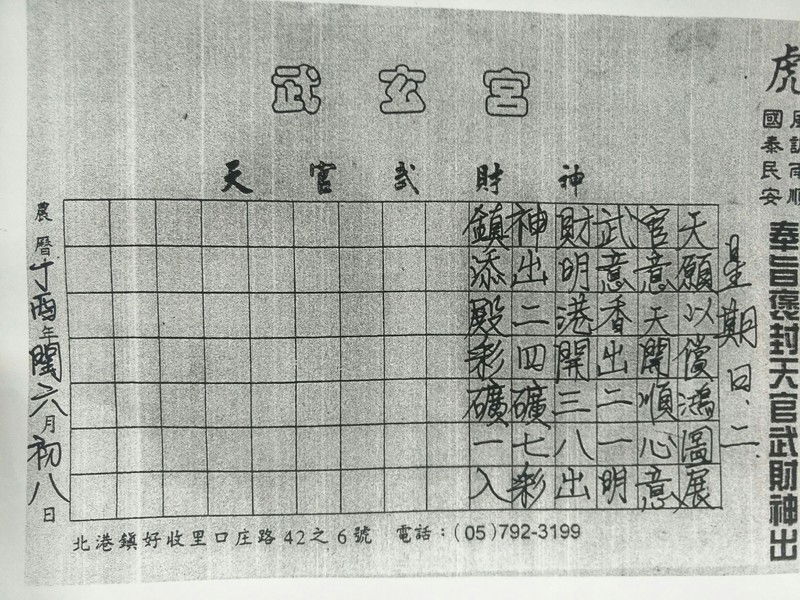 武玄宮
天官武財神
虎
風調雨順
國泰民安
奉旨褒封天官武財神出
星期日、二
天願以償鴻圖展
官意天開順心意
武意香出二一明
財明港開三八出
神出二四礦七彩
鎮添殿彩礦一入
農曆丁酉年閏六月初八日
北港鎮好收里口庄路42之6號 電話：(05)792-3199